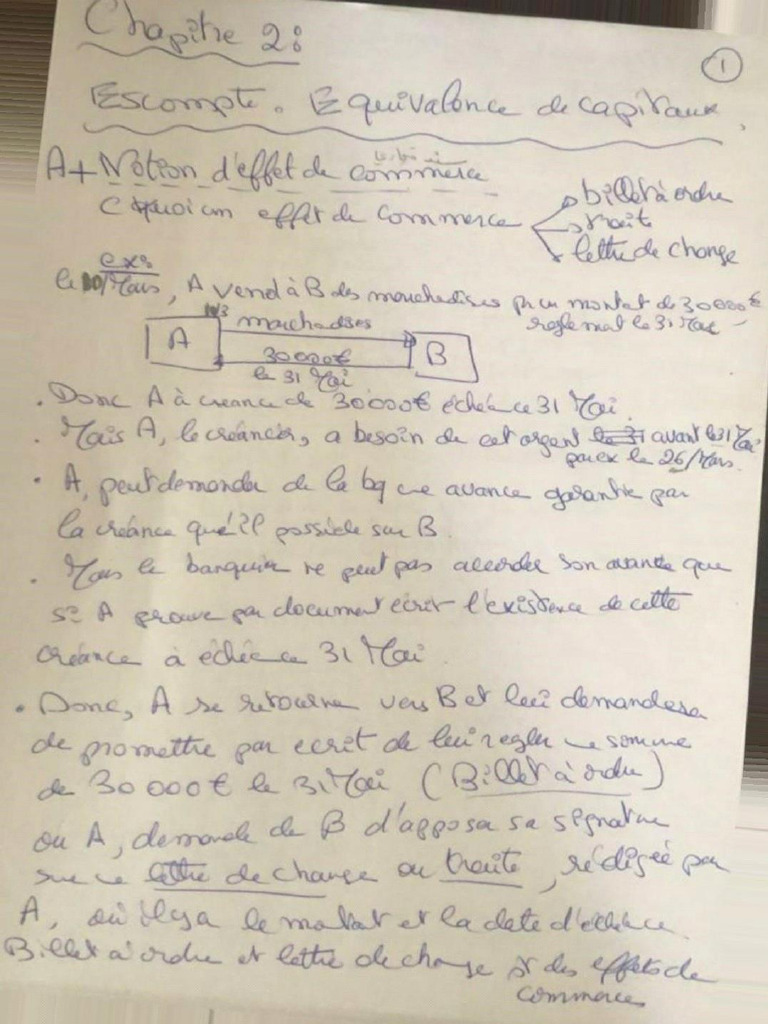 Chapitre 2:
1
Escompte. Equivalence de capitaux.
A+ Notion d'effet de commerce
C quoi un effet de commerce
billet à ordre
trait
lettre de change
ex:
le 10/Mars, A vend à B des marchadises pr un montat de 30 000 €
reglemat le 31 Mai
10/3
marchadises
A
B
30 000 €
le 31 Mai
. Donc A à creance de 30 000 € échéace 31 Mai.
. Mais A, le créancier, a besoin de cet argent le 31 avant le 31 Mai
par ex le 26/Mars.
. A, peut demander de la bq une avance garantie par
la créance qu'il possède sur B.
. Mais le banquier ne peut pas accorder son avance que
si A prouve par document écrit l'existence de cette
créance à échéace 31 Mai.
. Donc, A se retourne vers B et lui demandera
de promettre par ecrit de lui regler une somme
de 30 000 € le 31 Mai (Billet à ordre)
ou A, demande de B d'apposer sa signature
sur une lettre de change ou traite, rédigée par
A, où il y a le motat et la date d'échéance.
Billet à ordre et lettre de change st des effets de
commerces